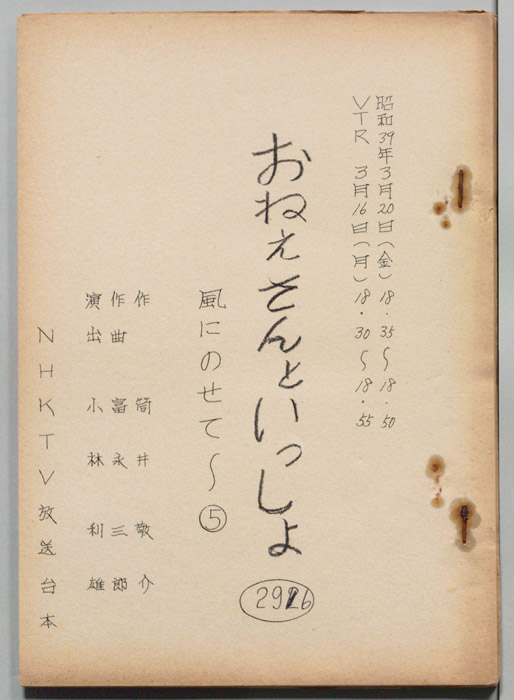 昭和39年3月20日(金)18・35〜18・50
VTR 3月16日(月)18・30〜18・55
おねえさんといっしょ
風にのせて〜⑤
作 筒井敬介
作曲 冨永三郎
演出 小林利雄
NHKTV放送台本